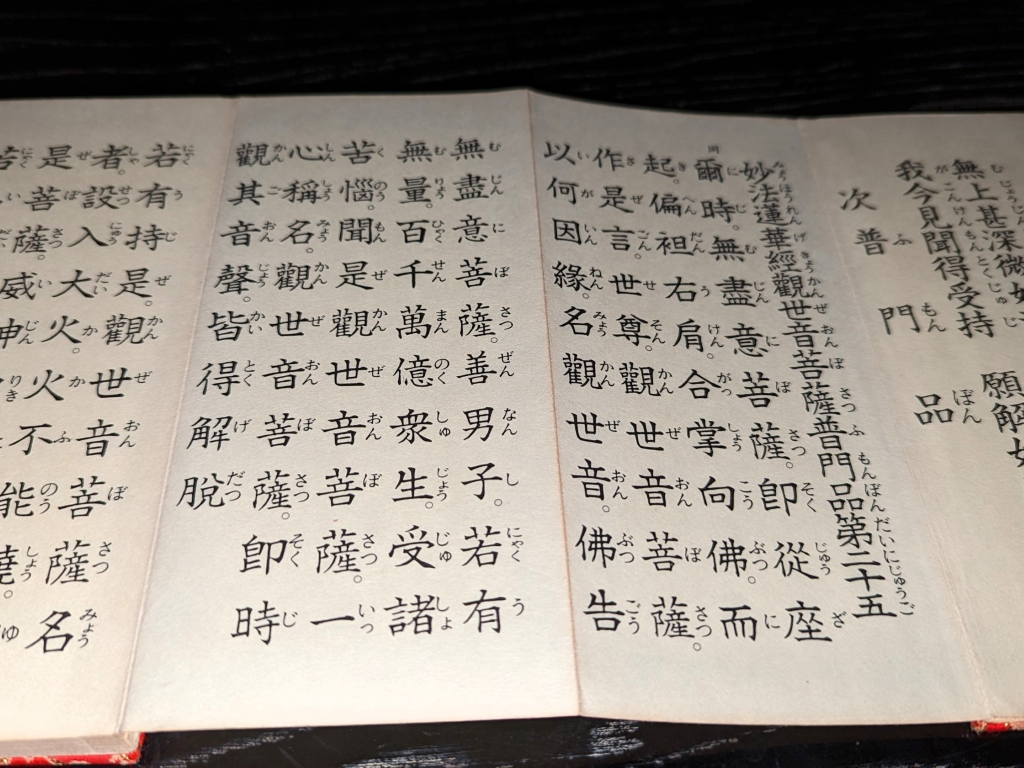 無上甚深微
我今見聞得受持 願解如
次 普門品
妙法蓮華經觀世音菩薩普門品第二十五
同
爾時。無盡意菩薩。卽從座
起。偏袒右肩。合掌向佛。而
作是言。世尊。觀世音菩薩。
以何因緣。名觀世音。佛告
無盡意菩薩。善男子。若有
無量。百千萬億衆生。受諸
苦惱。聞是觀世音菩薩。一
心稱名。觀世音菩薩。卽時
觀其音聲。皆得解脫
若有持是。觀世音菩薩名
者。設入大火。火不能燒。
是菩薩。威神